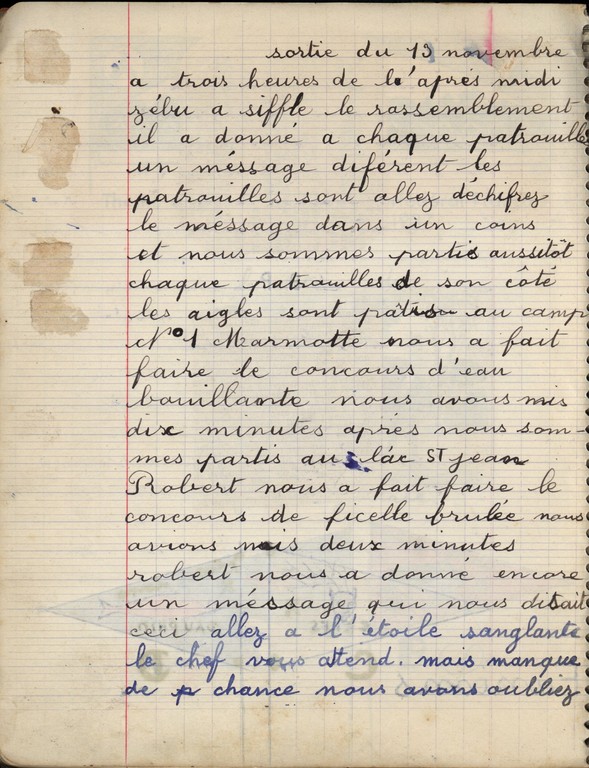 sortie du 13 novembre
a trois heures de l'après midi
zébu a siffle le rassemblement
il a donné a chaque patrouille
un méssage diférent les
patrouilles sont allez déchifrez
le méssage dans un coins
et nous sommes partis aussitôt
chaque patrouilles de son côté
les aigles sont au camp
N°1 Marmotte nous a fait
faire le concours d'eau
bouillante nous avons mis
dix minutes après nous som-
mes partis au lác ST jean
Robert nous a fait faire le
concours de ficelle brulée nous
avions mis deux minutes
robert nous a donné encore
un méssage qui nous disait
ceci allez a l'étoile sanglante
le chef vous attend. mais manque
de chance nous avons oubliez